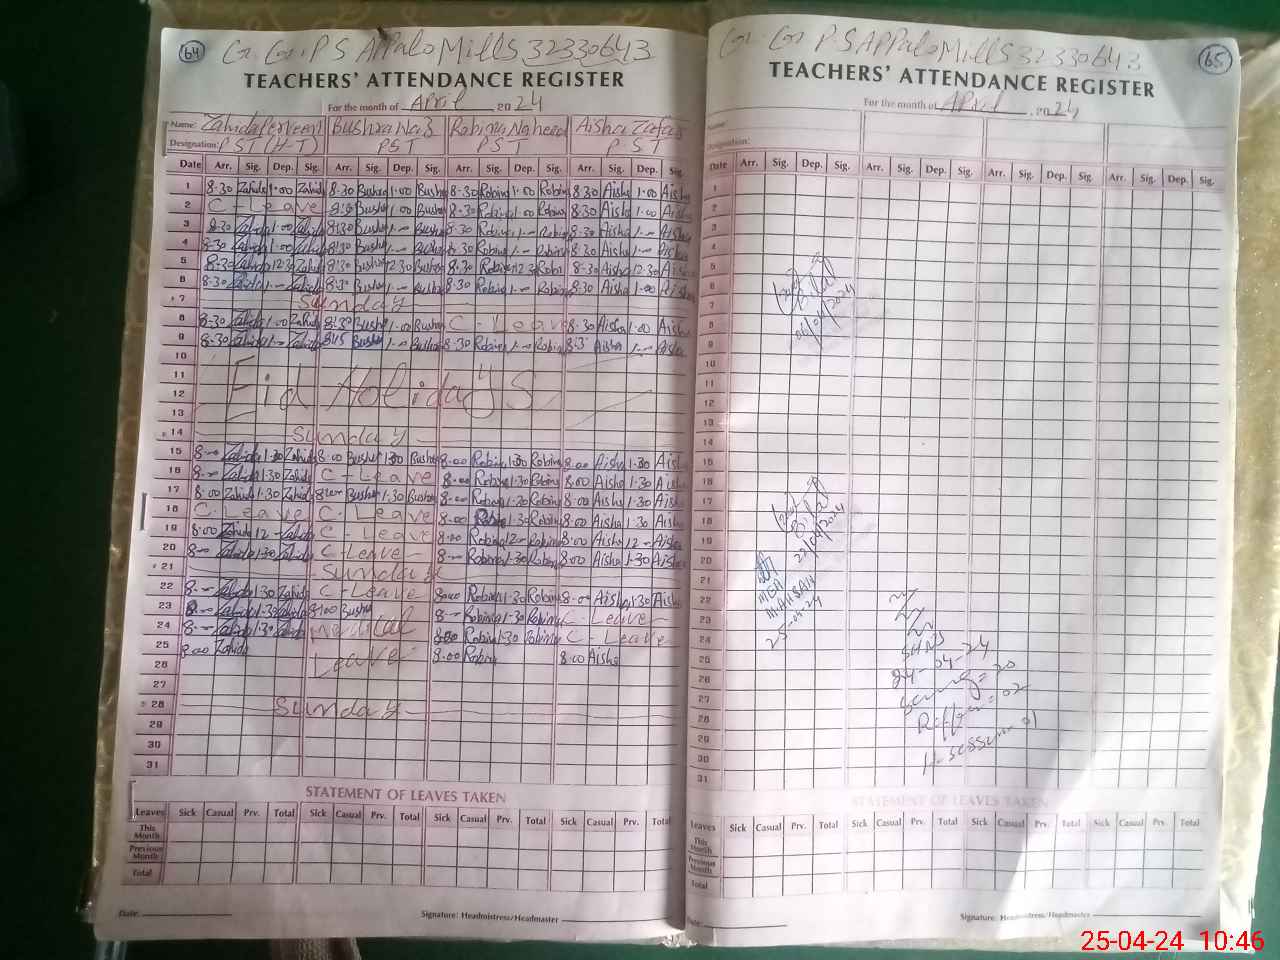 64 G. Gr. P S APPalo Mills 32330643
TEACHERS' ATTENDANCE REGISTER
For the month of April 2024
Name: Zahida Perveen Bushra Naz Robina Naheed Aisha Zafar
Designation: PST (H-T) PST PST PST
Date Arr. Sig. Dep. Sig. Arr. Sig. Dep. Sig. Arr. Sig. Dep. Sig. Arr. Sig. Dep. Sig.
1 8-30 Zahida 1-00 Zahida 8-30 Bushra 1-00 Bushra 8-30 Robina 1-00 Robina 8-30 Aisha 1-00 Aisha
2 C-Leave 8:30 Bushra 1-00 Bushra 8-30 Robina 1-00 Robina 8-30 Aisha 1-00 Aisha
3 8-30 Zahida 1-00 Zahida 8:30 Bushra 1-00 Bushra 8-30 Robina 1-00 Robina 8-30 Aisha 1-00 Aisha
4 8-30 Zahida 1-00 Zahida 8:30 Bushra 1-00 Bushra 8-30 Robina 1-00 Robina 8-30 Aisha 1-00 Aisha
5 8-30 Zahida 12-30 Zahida 8:30 Bushra 12-30 Bushra 8-30 Robina 12-30 Robina 8-30 Aisha 12-30 Aisha
6 8-30 Zahida 1-00 Zahida 8:30 Bushra 1-00 Bushra 8-30 Robina 1-00 Robina 8-30 Aisha 1-00 Aisha
7 Sunday
8 8-30 Zahida 1-00 Zahida 8:30 Bushra 1-00 Bushra C-Leave 8-30 Aisha 1-00 Aisha
9 8-30 Zahida 1-00 Zahida 8:15 Bushra 1-00 Bushra 8-30 Robina 1-00 Robina 8-3 Aisha 1-00 Aisha
10
11
12 Eid Holidays
13
14 Sunday
15 8-00 Zahida 1-30 Zahida 8-00 Bushra 1-30 Bushra 8-00 Robina 1-30 Robina 8-00 Aisha 1-30 Aisha
16 8-00 Zahida 1-30 Zahida C-Leave 8-00 Robina 1-30 Robina 8-00 Aisha 1-30 Aisha
17 8-00 Zahida 1-30 Zahida 8-00 Bushra 1-30 Bushra 8-00 Robina 1-30 Robina 8-00 Aisha 1-30 Aisha
18 C-Leave C-Leave 8-00 Robina 1-30 Robina 8-00 Aisha 1-30 Aisha
19 8-00 Zahida 12-00 Zahida C-Leave 8-00 Robina 12-00 Robina 8-00 Aisha 12-00 Aisha
20 8-00 Zahida 1-30 Zahida C-Leave 8-00 Robina 1-30 Robina 8-00 Aisha 1-30 Aisha
21 Sunday
22 8-00 Zahida 1-30 Zahida C-Leave 8-00 Robina 1-30 Robina 8-00 Aisha 1-30 Aisha
23 8-00 Zahida 1-30 Zahida 8:00 Bushra 8-00 Robina 1-30 Robina C-Leave
24 8-00 Zahida 1-30 Zahida Medical 8-00 Robina 1-30 Robina C-Leave
25 8-00 Zahida Leave 8-00 Robina 8-00 Aisha
26
27
28 Sunday
29
30
31
STATEMENT OF LEAVES TAKEN
Leaves Sick Casual Prv. Total Sick Casual Prv. Total Sick Casual Prv. Total Sick Casual Prv. Total
This Month
Previous Month
Total
Date: Signature: Headmistress/Headmaster
G. Gr P-S APPalo Mills 32330643 65
TEACHERS' ATTENDANCE REGISTER
For the month of April, 2024
Name:
Designation:
Date Arr. Sig. Dep. Sig. Arr. Sig. Dep. Sig. Arr. Sig. Dep. Sig. Arr. Sig. Dep. Sig.
1
2
3
4
5
6
7
8
9
10
11
12
13
14
15
16
17
18
19
20
21
22
23
24
25
26
27
28
29
30
31
06/04/2024
22/04/2024
MEA
M.AHSAN
25-04-24
SHNS
24-04-24
Screening = 20
Refferr = 02
H-session 01
STATEMENT OF LEAVES TAKEN
Leaves Sick Casual Prv. Total Sick Casual Prv. Total Sick Casual Prv. Total Sick Casual Prv. Total
This Month
Previous Month
Total
Date: Signature: Headmistress/Headmaster
25-04-24 10:46